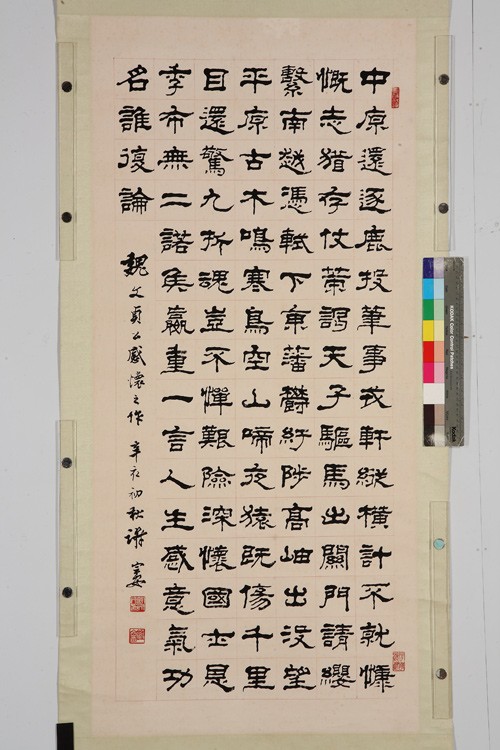 中原還逐鹿投筆事戎軒縱橫計不就慷
慨志猶存仗策謁天子驅馬出關門請纓
繫南越憑軾下東藩鬱紆陟高岫出没望
平原古木鳴寒鳥空山啼夜猿既傷千里
目還驚九折魂豈不憚艱險深懷國士恩
季布無二諾侯嬴重一言人生感意氣功
名誰復論
魏文貞公感懷之作 辛亥初秋
KODAK Color Control Patches
Kodak